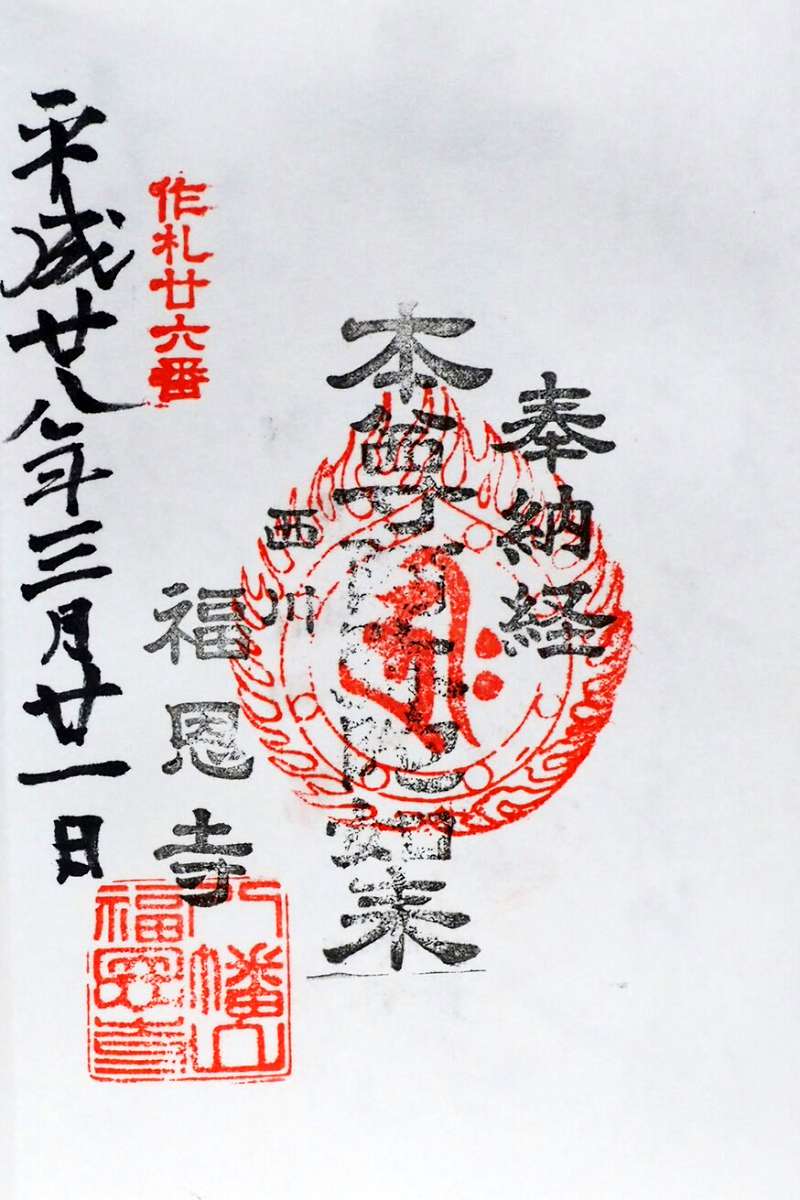 奉納経
本尊阿弥陀如来
西川
福恩寺
作札廿六番
平成廿八年三月廿一日
八幡山
福恩寺